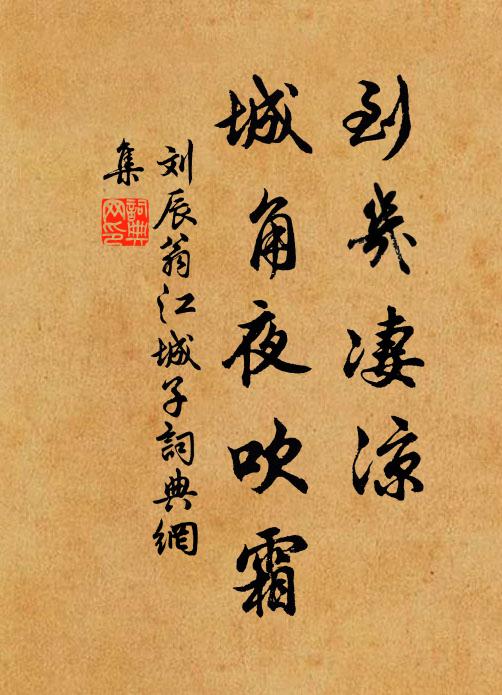 到幾凄涼
城角夜吹霜
刘辰翁江城子詞典網
集
詞典網印